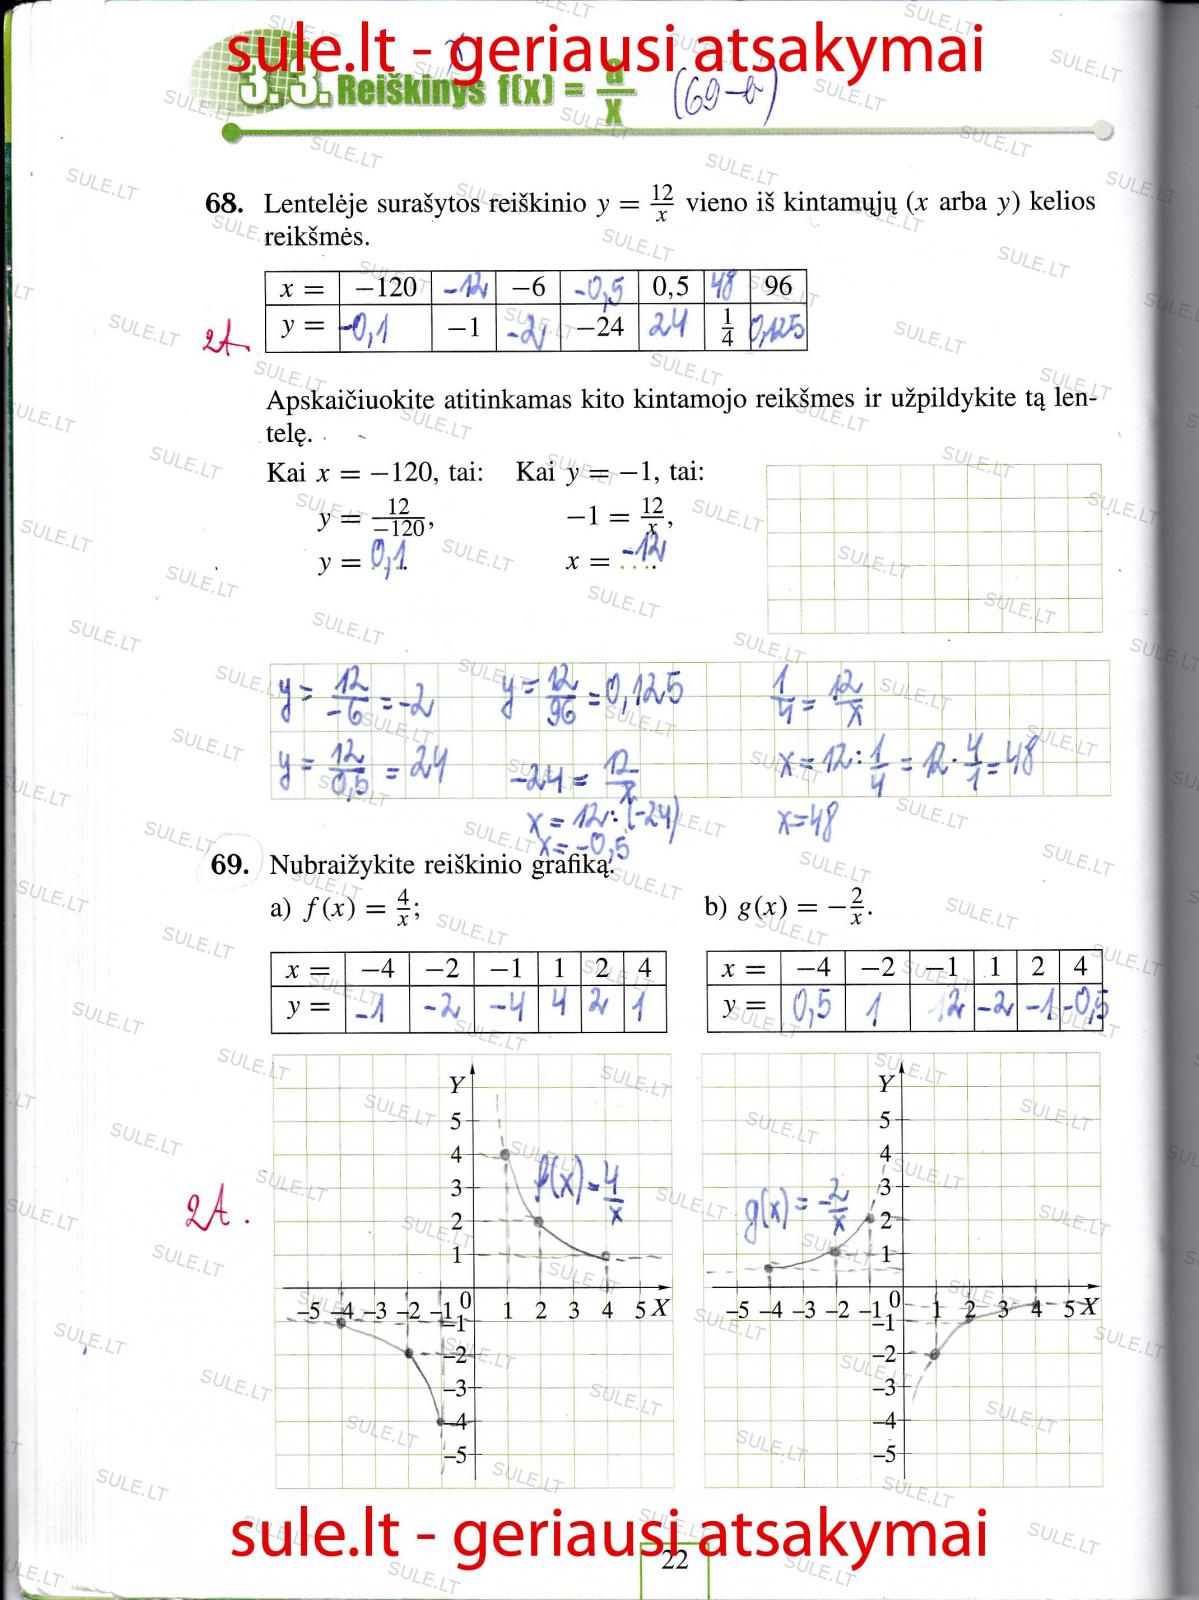 sule.lt - geriausi atsakymai
3.3. Reiškinys f(x) = a/x (69-b)
68. Lentelėje surašytos reiškinio y = 12/x vieno iš kintamųjų (x arba y) kelios
reikšmės.
x = −120 -12 −6 -0,5 0,5 48 96
y = -0,1 −1 -2 −24 24 1/4 0,125
2A.
Apskaičiuokite atitinkamas kito kintamojo reikšmes ir užpildykite tą len-
telę.
Kai x = −120, tai: Kai y = −1, tai:
y = 12/−120, −1 = 12/x,
y = 0,1 x = -12
y = 12/-6 = -2 y = 12/96 = 0,125 1/4 = 12/x
y = 12/0,5 = 24 -24 = 12/x x = 12 : 1/4 = 12 · 4/1 = 48
x = 12 : (-24) x=48
x = -0,5
69. Nubraižykite reiškinio grafiką.
a) f(x) = 4/x; b) g(x) = −2/x.
x = −4 −2 −1 1 2 4
y = -1 -2 -4 4 2 1
x = −4 −2 −1 1 2 4
y = 0,5 1 2 -2 -1 -0,5
2A.
Y
5
4
3
2
1
f(x) = 4/x
−5 −4 −3 −2 −1 0 1 2 3 4 5 X
−1
−2
−3
−4
−5
Y
5
4
3
2
1
g(x) = -2/x
−5 −4 −3 −2 −1 0 1 2 3 4 5 X
−1
−2
−3
−4
−5
sule.lt - geriausi atsakymai
22
SULE.LT